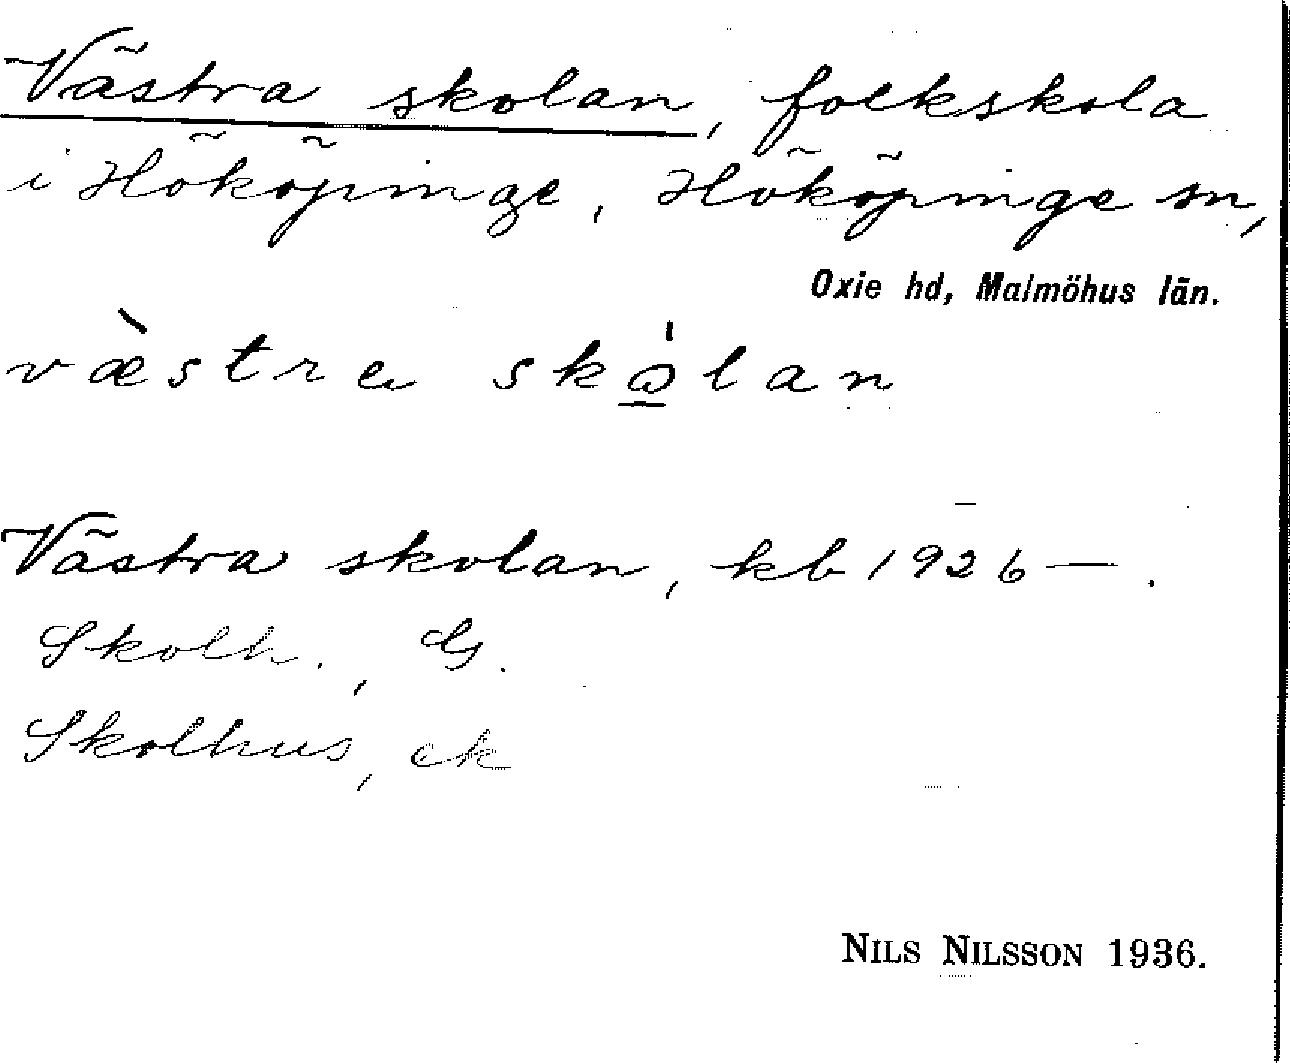 Västra skolan, folkskola
i Hököpinge, Hököpinge sn,
Oxie hd, Malmöhus län.
væ̀stre skó̱lan
Västra skolan, kb 1926–.
Skolh., G.
Skolhus, ek
NILS NILSSON 1936.